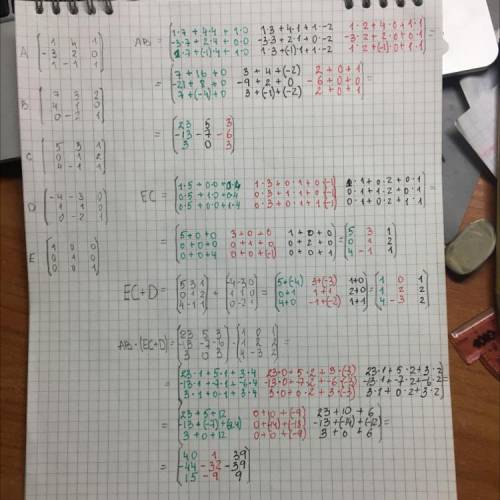 A 1 4 1
-3 2 0
1 -1 1
B 7 3 2
4 1 0
0 -2 1
C 5 3 1
0 1 2
4 -1 1
D -4 -3 0
1 1 0
0 -2 1
E 1 0 0
0 1 0
0 0 1
AB = 1·7+4·4+1·0 1·3+4·1+1·-2 1·2+4·0+1·1
-3·7+2·4+0·0 -3·3+2·1+0·-2 -3·2+2·0+0·1 =
1·7+(-1)·4+1·0 1·3+(-1)·1+1·-2 1·2+(-1)·0+1·1
7+16+0 3+4+(-2) 2+0+1
= -21+8+0 -9+2+0 -6+0+0 =
7+(-4)+0 3+(-1)+(-2) 2+0+1
23 5 3
= -13 -7 -6
3 0 3
EC = 1·5+0·0+0·4 1·3+0·1+0·(-1) 1·1+0·2+0·1
0·5+1·0+0·4 0·3+1·1+0·(-1) 0·1+1·2+0·1 =
0·5+0·0+1·4 0·3+0·1+1·(-1) 0·1+0·2+1·1
5+0+0 3+0+0 1+0+0 5 3 1
= 0+0+0 0+1+0 0+2+0 = 0 1 2
0+0+4 0+0+(-1) 0+0+1 4 -1 1
5 3 1 -4 -3 0 5+(-4) 3+(-3) 1+0 1 0 1
EC+D = 0 1 2 + 1 1 0 = 0+1 1+1 2+0 = 1 2 2
4 -1 1 0 -2 1 4+0 -1+(-2) 1+1 4 -3 2
23 5 3 1 0 1
AB·(EC+D) = -13 -7 -6 · 1 2 2 =
3 0 3 4 -3 2
23·1+5·1+3·4 23·0+5·2+3·(-3) 23·1+5·2+3·2
= -13·1+-7·1+-6·4 -13·0+-7·2+-6·(-3) -13·1+-7·2+-6·2 =
3·1+0·1+3·4 3·0+0·2+3·(-3) 3·1+0·2+3·2
23+5+12 23+10+6
= -13+(-7)+(-24) -13+(-14)+(-12) =
3+0+12 0+0+(-9) 3+0+6
40 1 39
= -44 -32 -39
15 -9 9